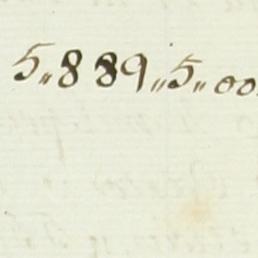 5„889„5„00